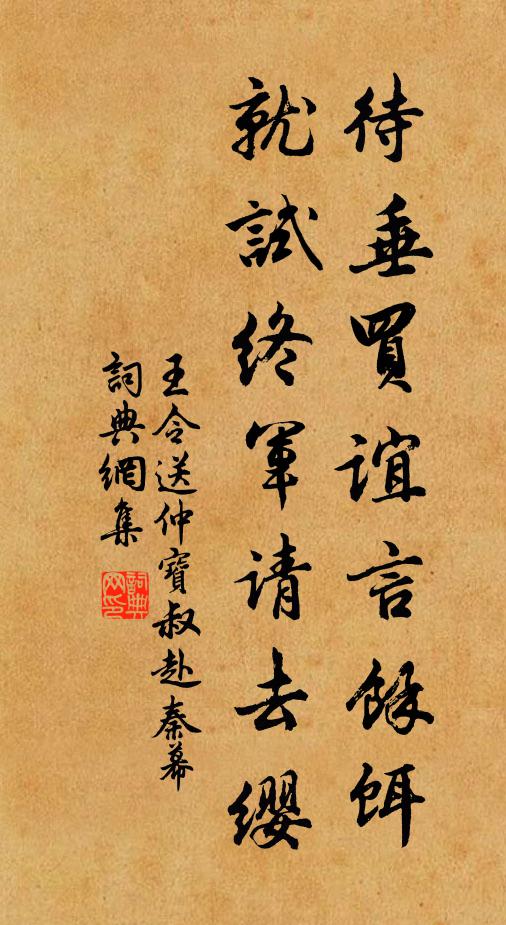 待垂買誼言餘餌
就試終軍请去纓
王令送仲寶叔赴秦幕
詞典網集
詞典网印